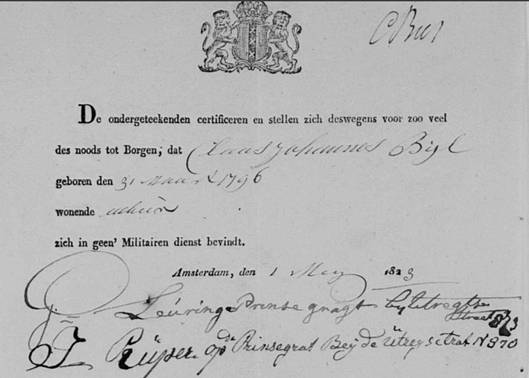 De ondergeteekenden certificeren en stellen zich deswegens voor zoo veel
des noods tot Borgen, dat Claas Johannes Bijl
geboren den 31 Maart 1796
wonende alhier
zich in geen' Militairen dienst bevindt.
Amsterdam, den 1 Mey 1823
Leuring Prinse gragt bij Utregtse
straat
J Kuijper op de Prinsegrat Beij de Utreysetrat N 870